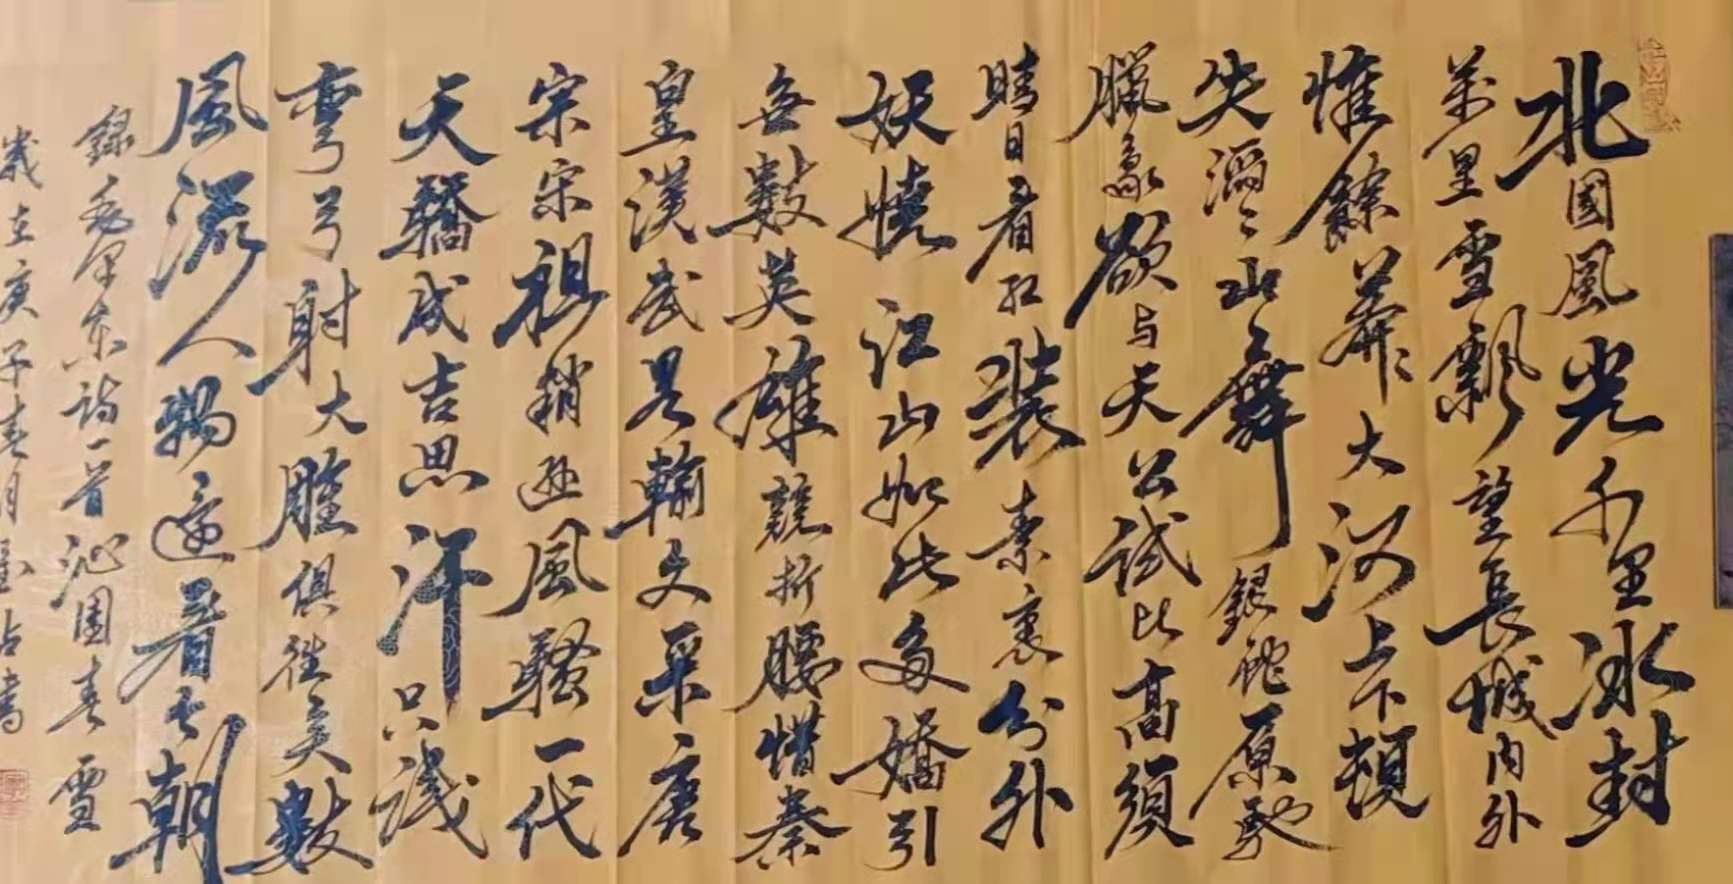 北國風光千里冰封
萬里雪飄望長城内外
惟餘莽〻大河上下頓
失滔〻山舞銀蛇原馳
臘象欲与天公試比高須
晴日看红裝素裹分外
妖嬈江山如此多嬌引
無數英雄競折腰惜秦
皇漢武畧輸文采唐
宗宋祖稍遜風騷一代
天驕成吉思汗只識
彎弓射大雕俱往矣數
風流人物還看今朝
錄毛澤東詩一首沁園春雪
歲在庚子春月占書